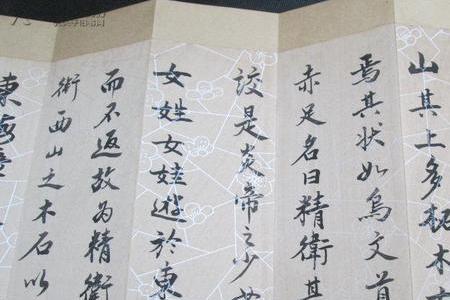 山其上多柘木
焉其状如烏文首
赤足名曰精衛其
詨是炎帝之少女
女姓女娃遊於東
而不返故为精衛
銜西山之木石以
東海